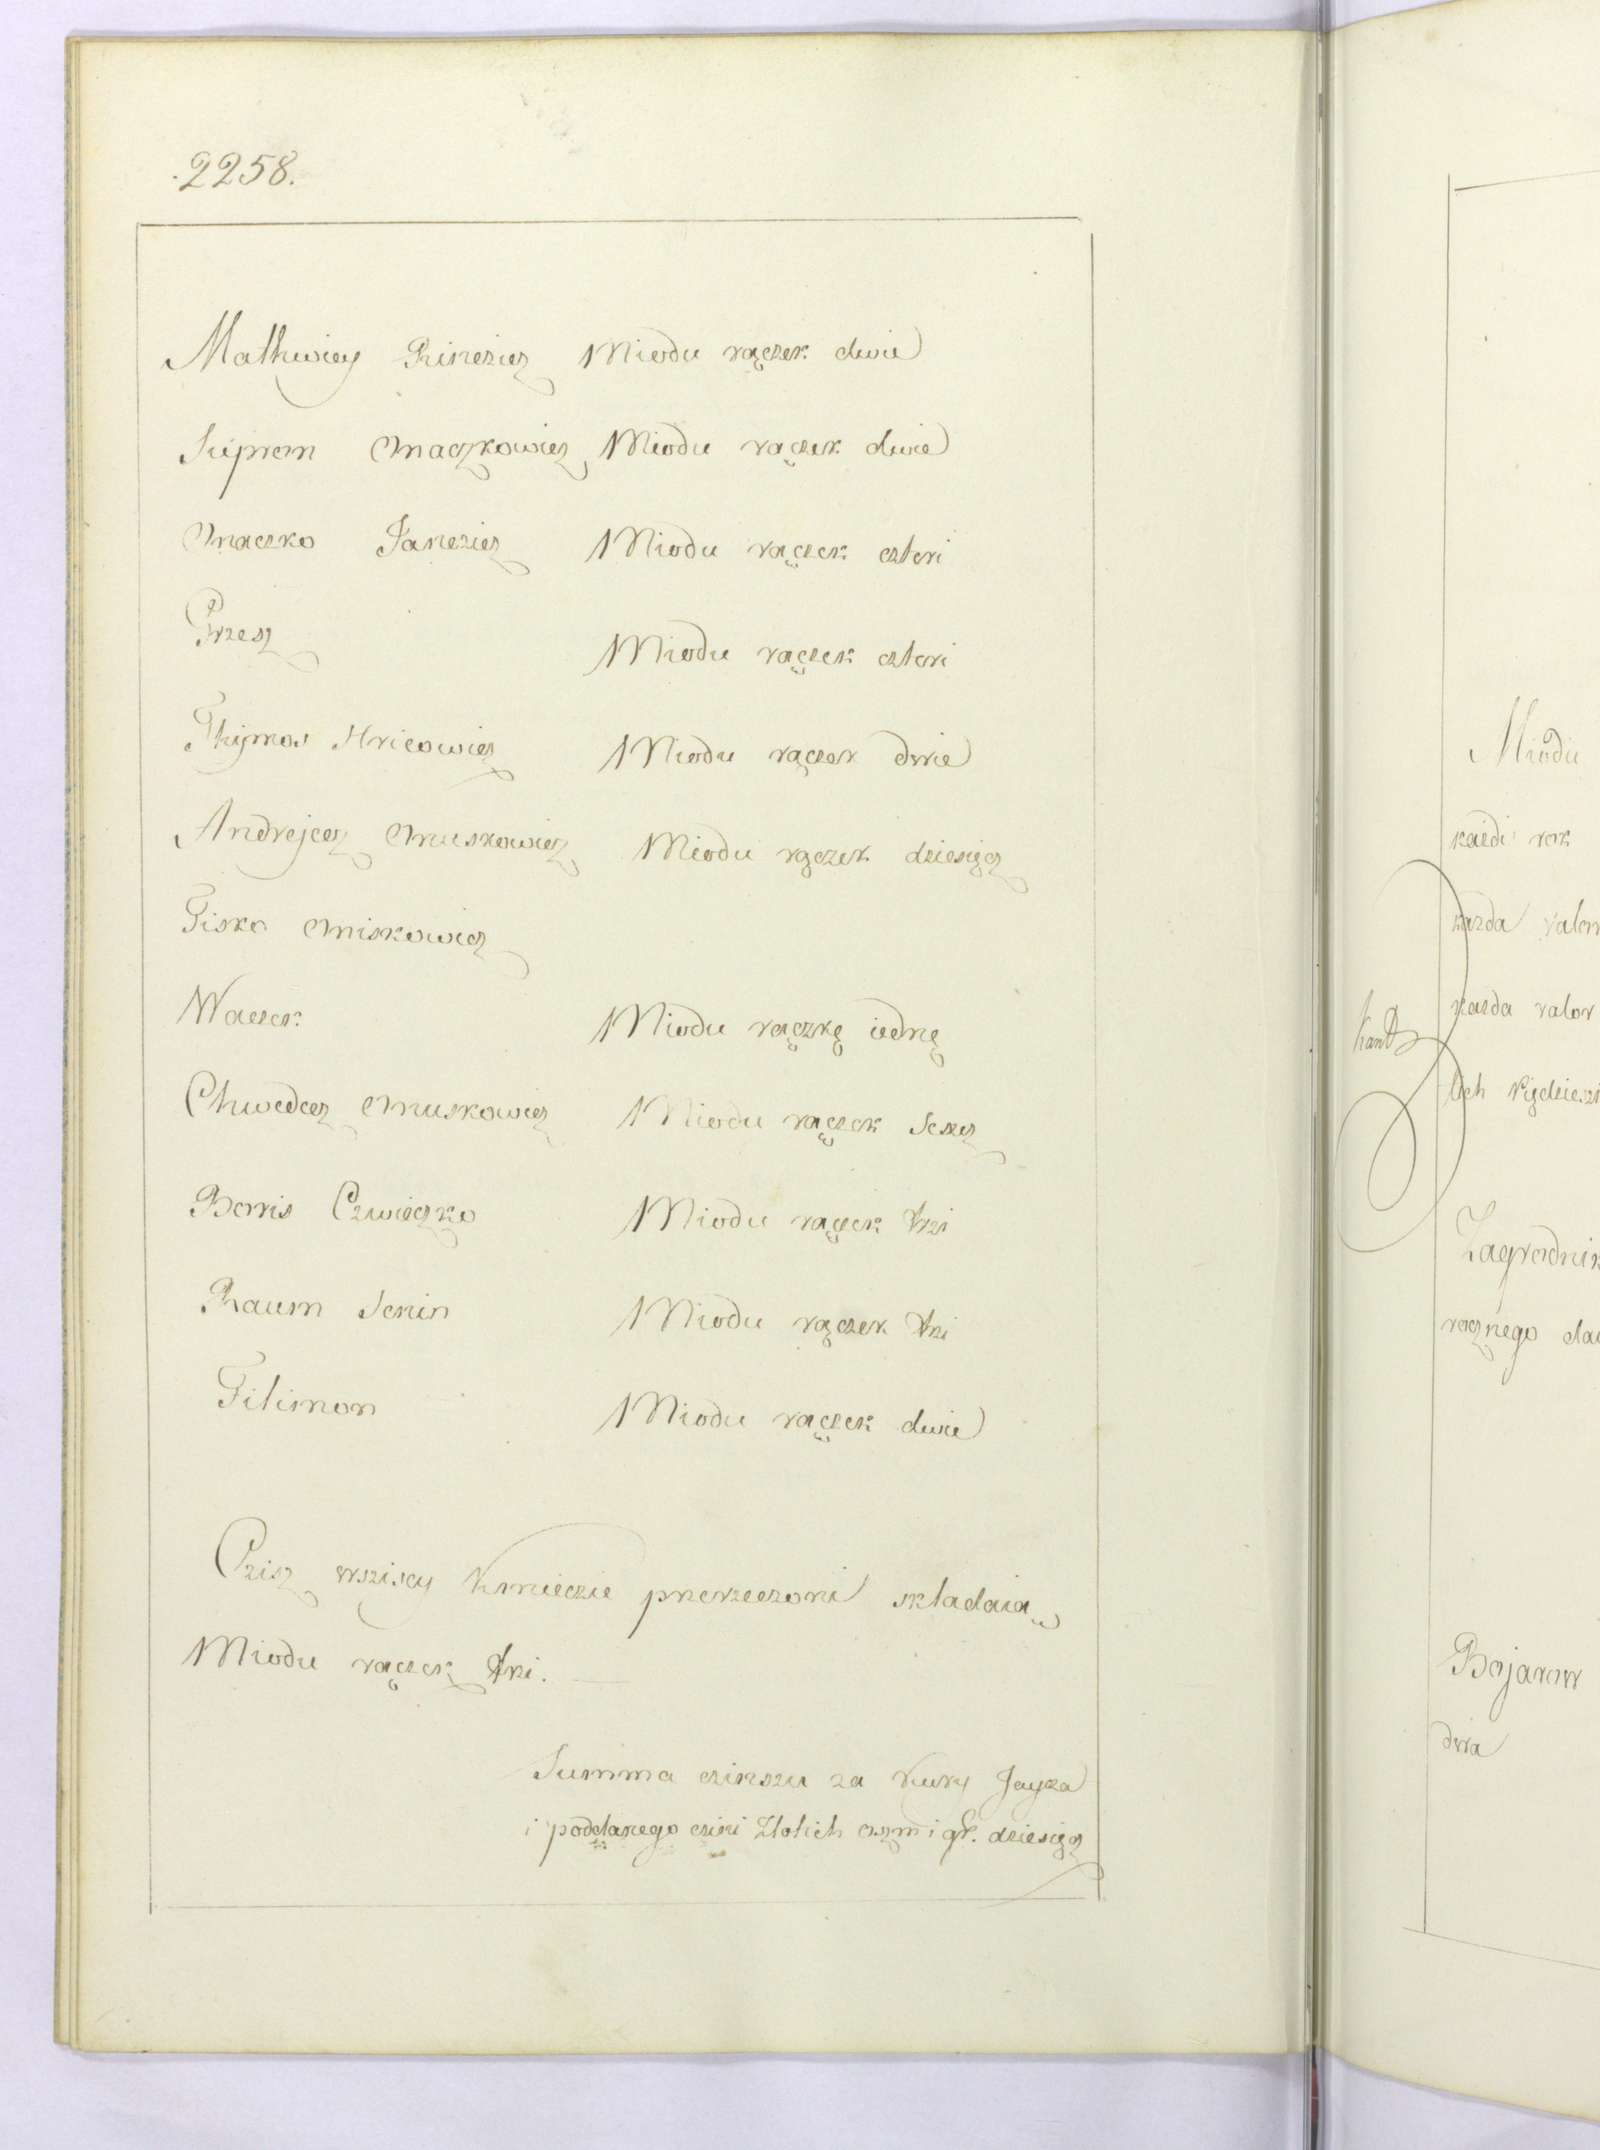 .2258.
Mathwiey Kinczicz Miodu rączek dwie
Suprom Omaczkowicz Miodu rączek dwie
Omaczko Janczicz Miodu rączek cztori
Grzesz Miodu rączek cztori
Thymos Hricowicz Miodu rączek dwie
Andrejcez Omuskowicz Miodu rączek dziesięcz
Fisko Omiskowicz
Waczek Miodu rączkę iednę
Chwedcez Omuskowicz Miodu rączek Sescz
Borris Czwieczko Miodu rączek trzi
Raum Senin Miodu rączek trzi
Filimon Miodu rączek dwie
Czisz wsziscy Kmieczie przerzeczoni składaią
Miodu rączek trzi.
Summa czinszu za Kury Jayza
i poddanego czini Złotich oszm i gr. dziesięcz
Miodu
każdi rok
każda
każda valor
kant
tich
Zagrodnik
rocznego
Bojarow
dwa